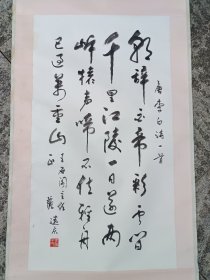 唐李白诗一首
朝辞白帝彩雲间
千里江陵一日還两
岸猿声啼不住轻舟
已过萬重山
正